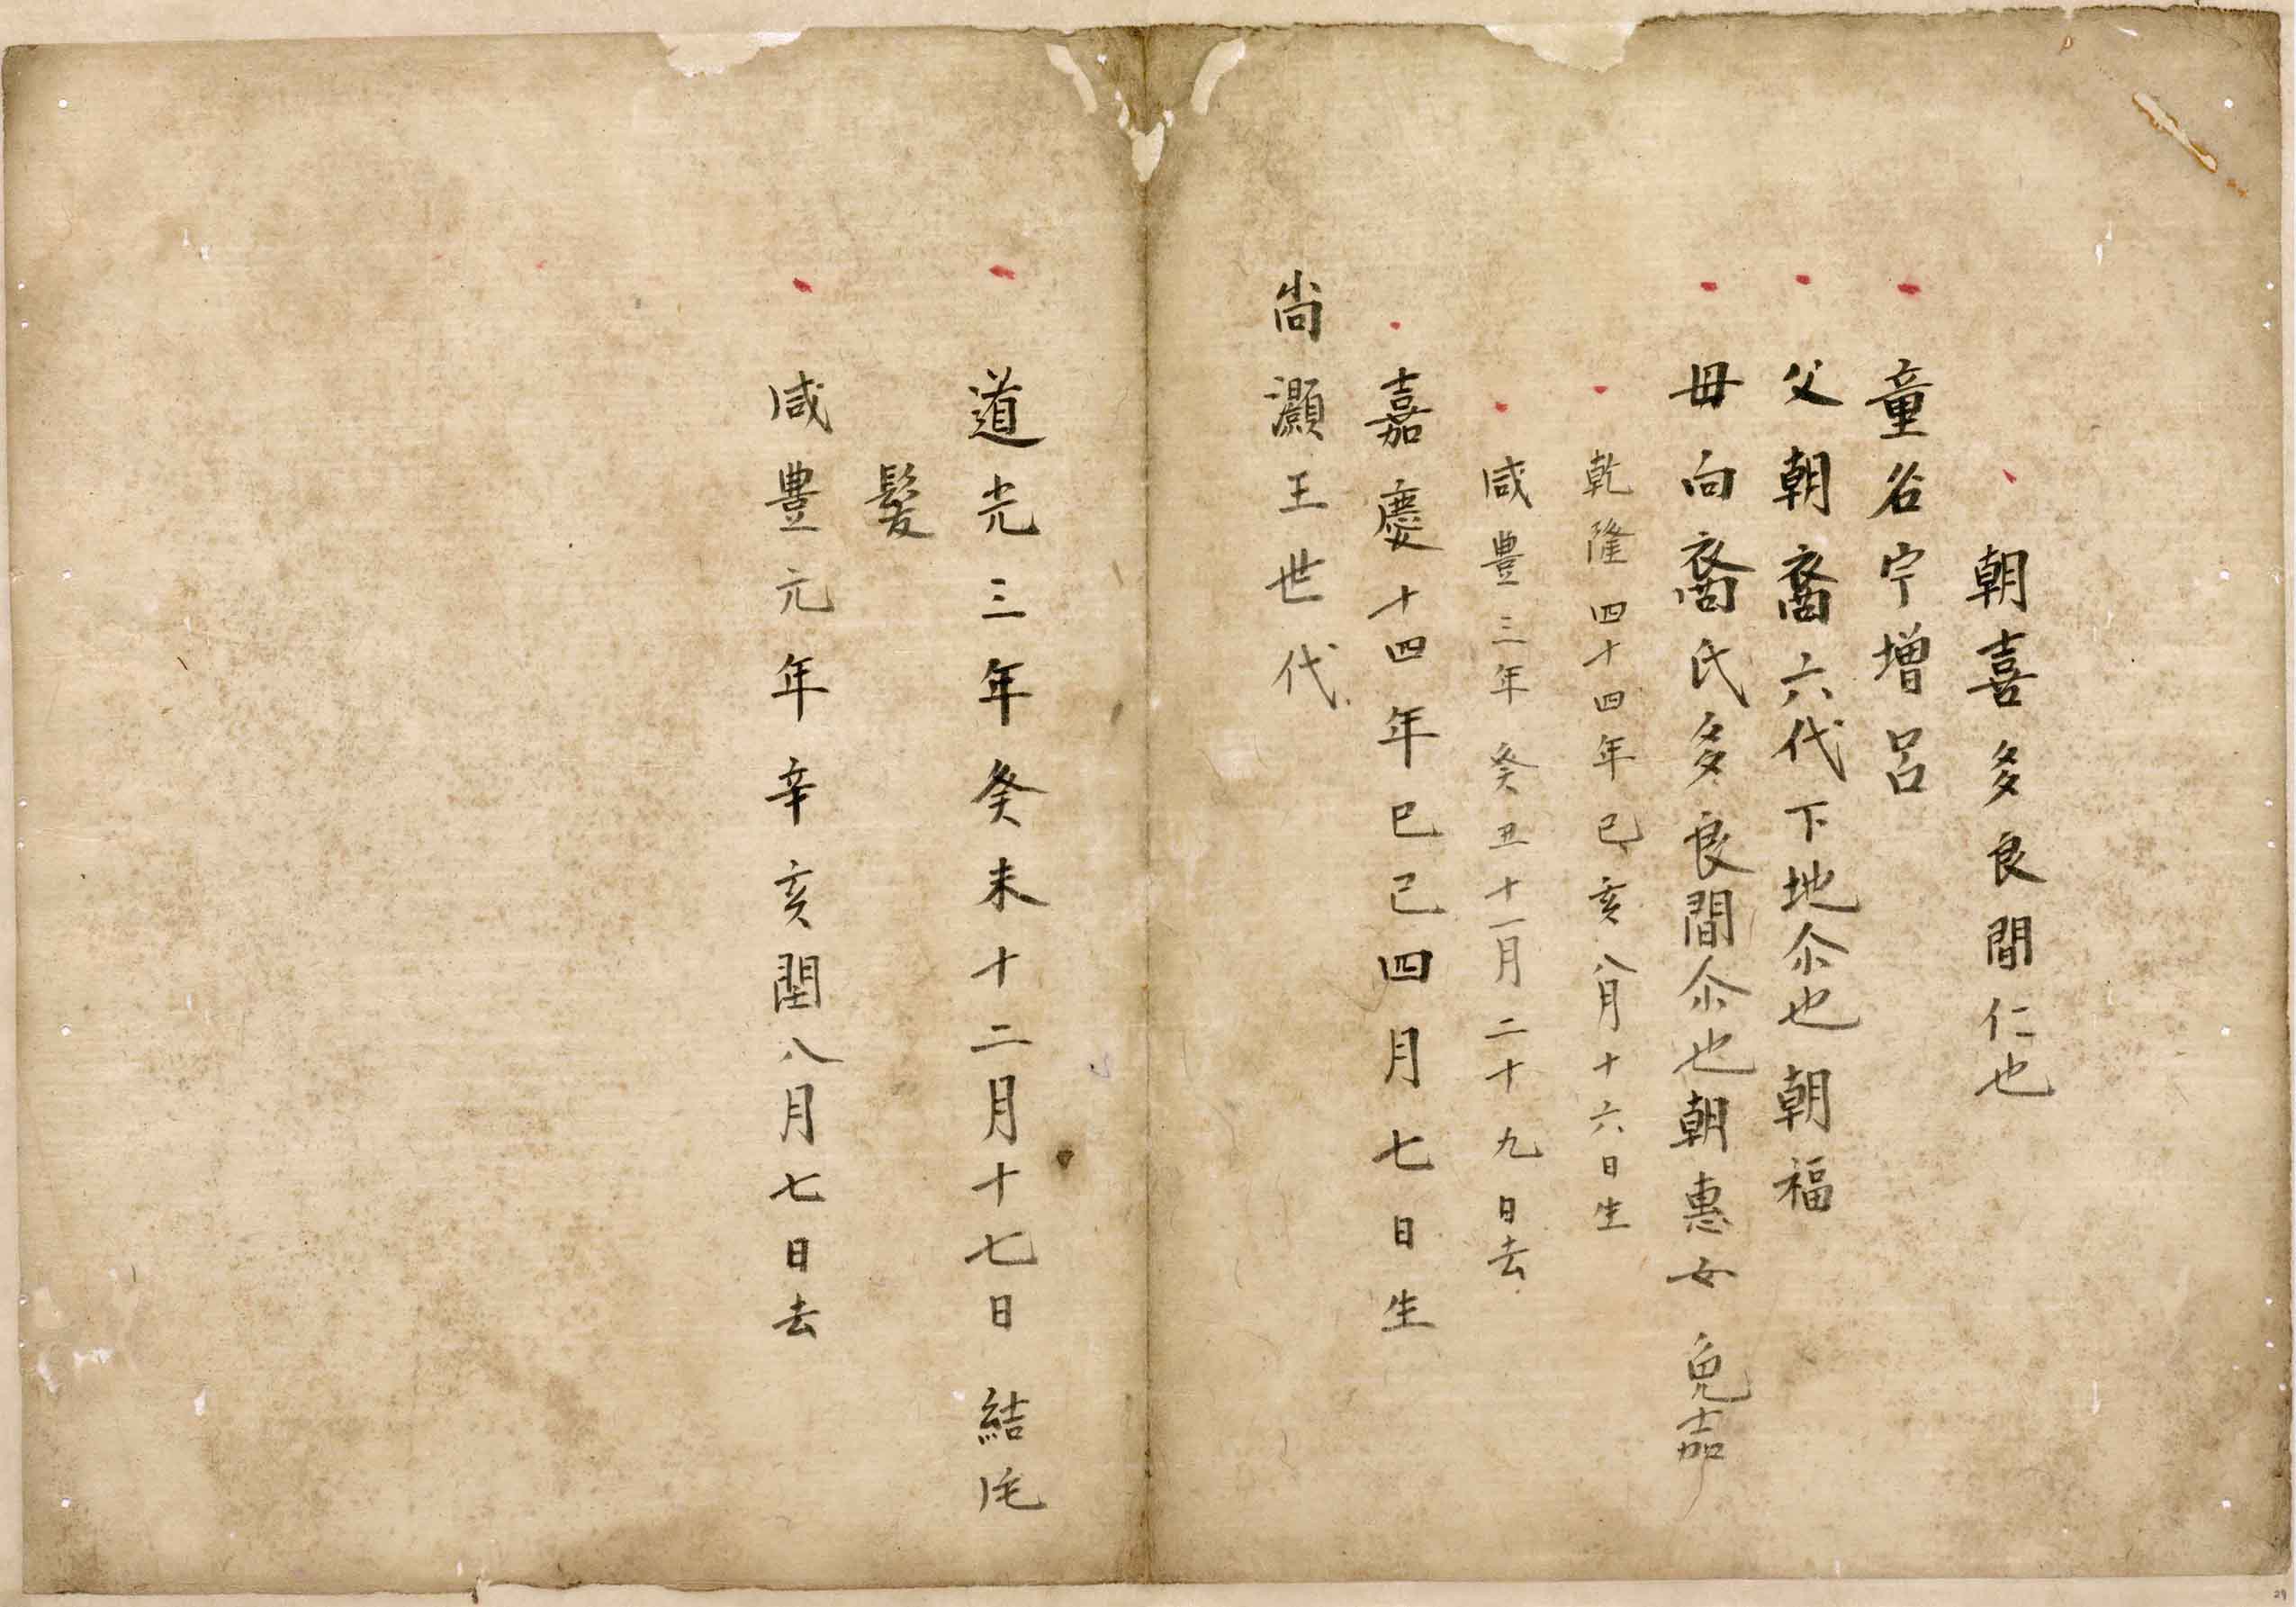 朝喜多良間仁也
童名宁增呂
父朝裔六代下地尒也朝福
母向裔氏多良間尒也朝惠女兔嘉
乾隆四十四年己亥八月十六日生
咸豊三年癸丑十一月二十九日去
嘉慶十四年己巳四月七日生
尚灝王世代
道光三年癸未十二月十七日結
髮
咸豊元年辛亥閏八月七日去